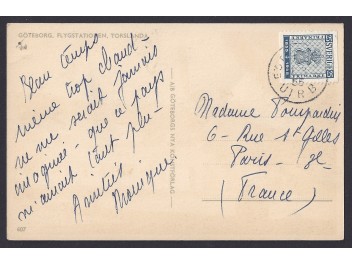 GÖTEBORG. FLYGSTATIONEN, TORSLANDA.
Beau temps
même trop chaud -
je ne serait jamais
imaginée - que ce pays
m'aurait tant plu -
Amitiés
Monique
A/B GÖTEBORGS NYA KONSTFÖRLAG
SVERIGE
Madame Pompardin
6 - Rue St Gilles
Paris - 3e
(France)
607